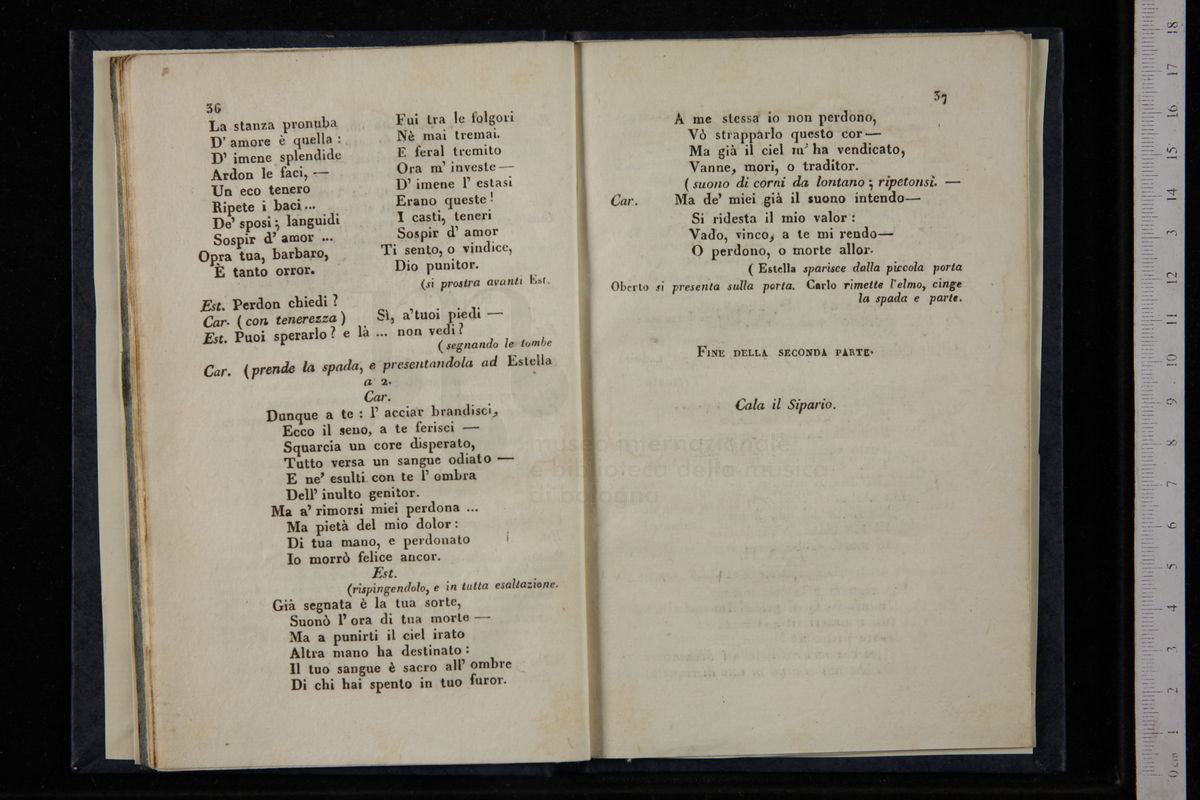 36
La stanza pronuba
D' amore è quella :
D' imene splendide
Ardon le faci, —
Un eco tenero
Ripete i baci...
De' sposi; languidi
Sospir d' amor ...
Opra tua, barbaro,
È tanto orror.
Fui tra le folgori
Nè mai tremai.
E feral tremito
Ora m' investe —
D' imene l' estasi
Erano queste!
I casti, teneri
Sospir d' amor
Ti sento, o vindice,
Dio punitor.
(si prostra avanti Est.
Est. Perdon chiedi ?
Car. (con tenerezza) Sì, a'tuoi piedi —
Est. Puoi sperarlo? e là ... non vedi?
(segnando le tombe
Car. (prende la spada, e presentandola ad Estella
a 2.
Car.
Dunque a te : l' acciar brandisci,
Ecco il seno, a te ferisci —
Squarcia un core disperato,
Tutto versa un sangue odiato —
E ne' esulti con te l' ombra
Dell' inulto genitor.
Ma a' rimorsi miei perdona ...
Ma pietà del mio dolor:
Di tua mano, e perdonato
Io morrò felice ancor.
Est.
(rispingendolo, e in tutta esaltazione.
Già segnata è la tua sorte,
Suonò l' ora di tua morte —
Ma a punirti il ciel irato
Altra mano ha destinato :
Il tuo sangue è sacro all' ombre
Di chi hai spento in tuo furor.
37
A me stessa io non perdono,
Vò strapparlo questo cor —
Ma già il ciel m' ha vendicato,
Vanne, mori, o traditor.
(suono di corni da lontano; ripetonsi. —
Car. Ma de' miei già il suono intendo—
Si ridesta il mio valor :
Vado, vinco, a te mi rendo—
O perdono, o morte allor.
( Estella sparisce dalla piccola porta
Oberto si presenta sulla porta. Carlo rimette l'elmo, cinge
la spada e parte.
FINE DELLA SECONDA PARTE.
Cala il Sipario.
museo internazionale
e biblioteca della musica
di bologna
0 cm 1 2 3 4 5 6 7 8 9 10 11 12 13 14 15 16 17 18